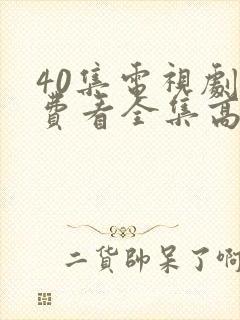 40集電視劇
費看全集高
二貨帥呆了啊